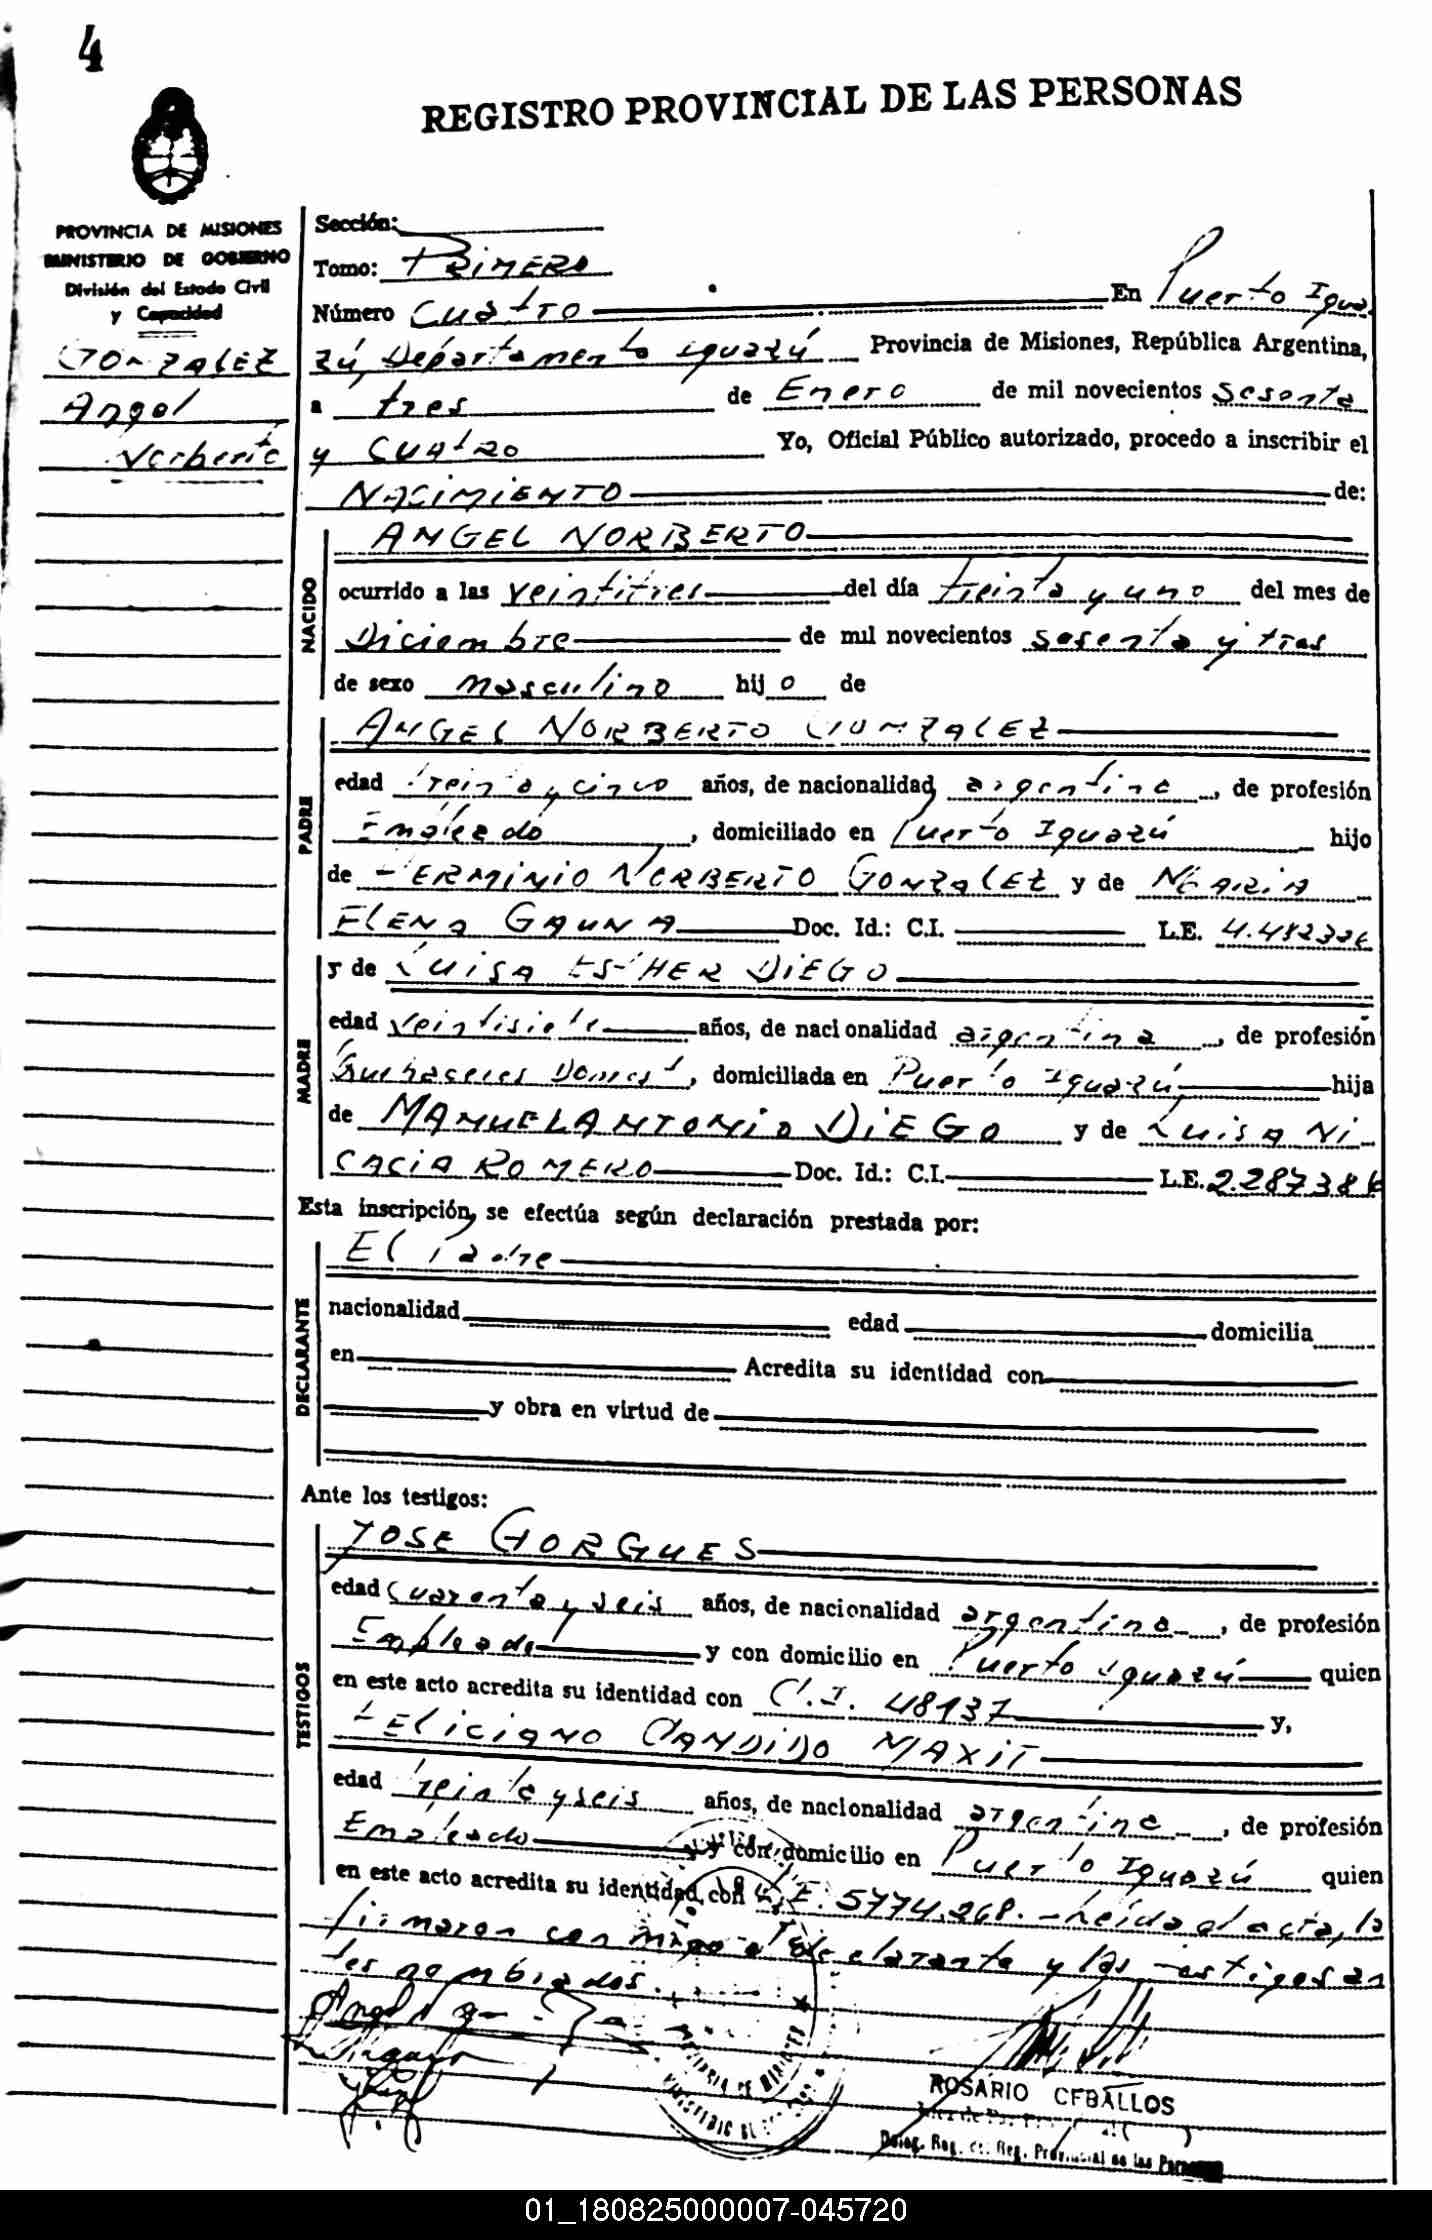 4
REGISTRO PROVINCIAL DE LAS PERSONAS
PROVINCIA DE MISIONES
MINISTERIO DE GOBIERNO
División del Estado Civil
y Capacidad
GONZALEZ
Angel
Norberto
Sección:
Tomo: PRIMERO
Número CUATRO En Puerto Igua
zú, Departamento Iguazú Provincia de Misiones, República Argentina,
a tres de Enero de mil novecientos sesenta
y CUATRO Yo, Oficial Público autorizado, procedo a inscribir el
NACIMIENTO de:
NACIDO
ANGEL NORBERTO
ocurrido a las veintitres del día treinta y uno del mes de
Diciembre de mil novecientos sesenta y tres
de sexo masculino hijo de
PADRE
ANGEL NORBERTO GONZALEZ
edad treinta y cinco años, de nacionalidad argentina, de profesión
Empleado, domiciliado en Puerto Iguazú hijo
de HERMINIO NORBERTO GONZALEZ y de MARIA
ELENA GAUNA Doc. Id.: C.I. L.E. 4.482.326
MADRE
y de LUISA ESTHER DIEGO
edad veintisiete años, de nacionalidad argentina, de profesión
Quehaceres Domest, domiciliada en Puerto Iguazú hija
de MANUEL ANTONIO DIEGO y de LUISA NI
CACIA ROMERO Doc. Id.: C.I. L.E. 2.287.38
Esta inscripción, se efectúa según declaración prestada por:
DECLARANTE
El Padre
nacionalidad edad domicilia
en Acredita su identidad con
y obra en virtud de
Ante los testigos:
TESTIGOS
JOSE GORGUES
edad cuarenta y seis años, de nacionalidad argentina, de profesión
Empleado y con domicilio en Puerto Iguazú quien
en este acto acredita su identidad con C.I. 48137 y,
FELICIANO CANDIDO MAXIT
edad treinta y seis años, de nacionalidad argentina, de profesión
Empleado y con domicilio en Puerto Iguazú quien
en este acto acredita su identidad con L.E. 5774.268. - Leida el acta, la
firmaron conmigo el declarante y los testigos an
tes nombrados.
ROSARIO CEBALLOS
Deleg. Reg. del Reg. Provincial de las Personas
01_180825000007-045720